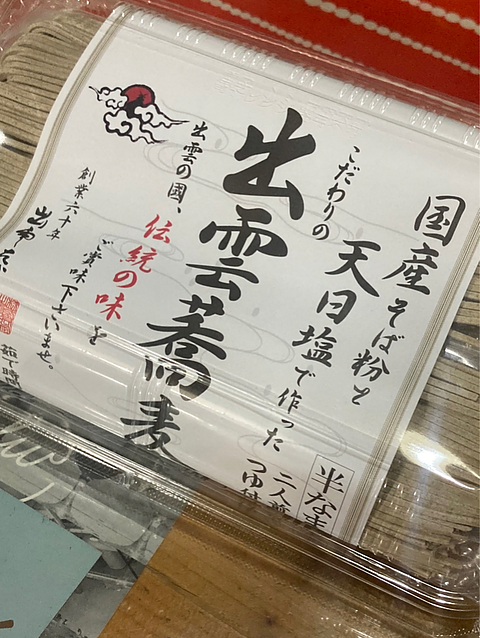 国産そば粉と
こだわりの天日塩で作った
出雲蕎麦
半なま
二人前
つゆ付
出雲の國、
伝統の味を
ご賞味下さいませ。
創業六十年